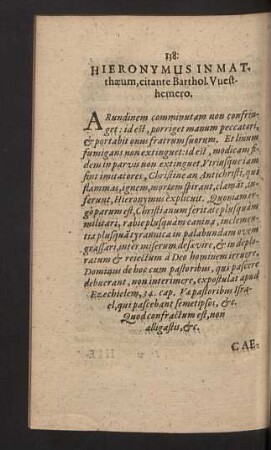 138:
HIERONYMUS IN MAT-
thæum, citante Barthol. Vuest-
hemero.
ARundinem comminutam non confrin-
get: id est, porriget manum peccatori,
& portabit onus fratrum suorum. Et linum
fumigans non extinguet: id est, modicam fi-
dem in parvis non extinguet. Utrius que iam
sint imitatores, Christi ne an Antichristi, qui
flammas, ignem, mortem spirant, clamāt, in-
ferunt, Hieronymus explicuit. Quoniam er-
go parum est, Christianum feritate plusquàm
militari, rabie plusquàm canina, inclemen-
tia plusquā tyrannica in palabundam ovem
grassari, inter miserum desævire, & in deplo-
ratum & reiectum à Deo hominem irruere:
Dominus de hoc cum pastoribus, qui pascere
debuerant, non interimere, expostulat apud
Ezechielem, 34. cap. Væ pastoribus Isra-
el, qui pascebant semetipsos, &c.
Quod confractum est, non
alligastis, &c.
CAE-